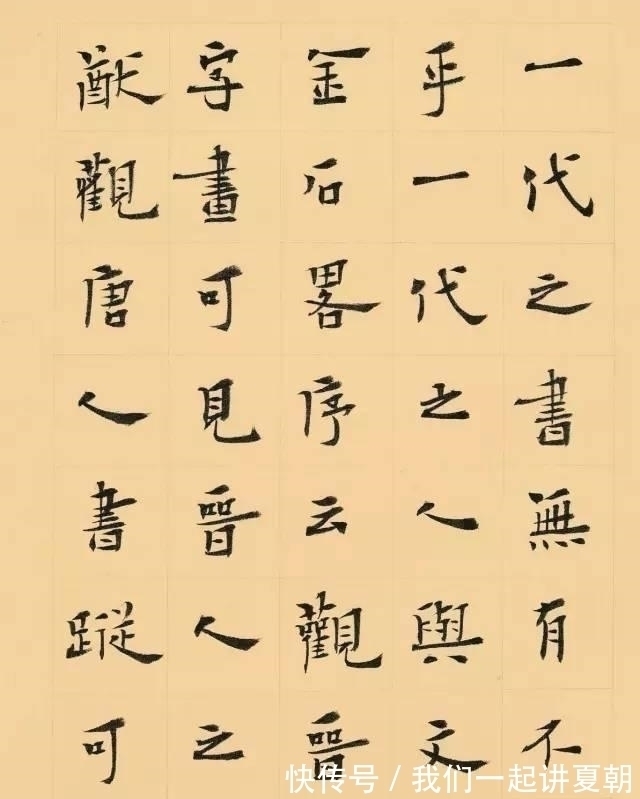 一代之書無有不
乎一代之人與文
金石畧序云觀晉
字畫可見晉人之
猷觀唐人書蹤可
快传号 / 我们一起讲夏朝